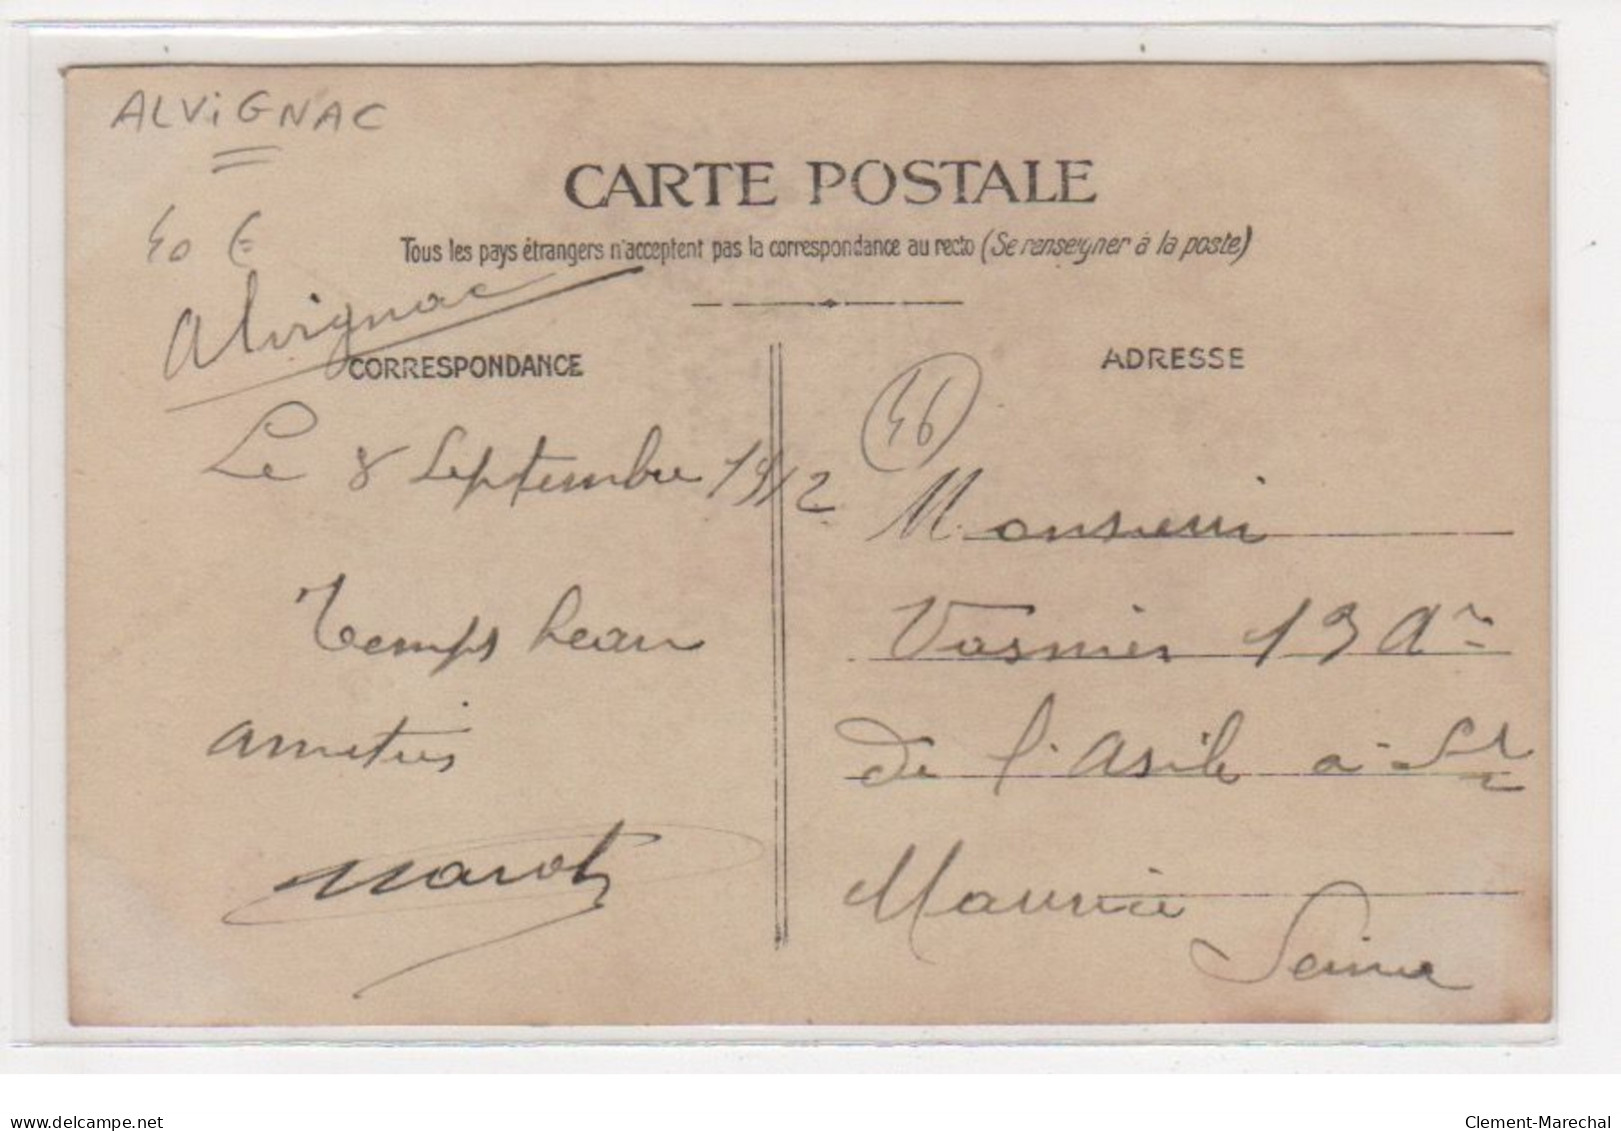 ALViGNAC
40 €
CARTE POSTALE
Tous les pays étrangers n'acceptent pas la correspondance au recto (Se renseigner à la poste)
Alvignac
CORRESPONDANCE
Le 8 Septembre 1912
Temps beau
amitiés
Marot
ADRESSE
46
Monsieur
Vosnier 13 Av
de l'asile à St
Maurice
Seine
www.delcampe.net
Clement-Marechal